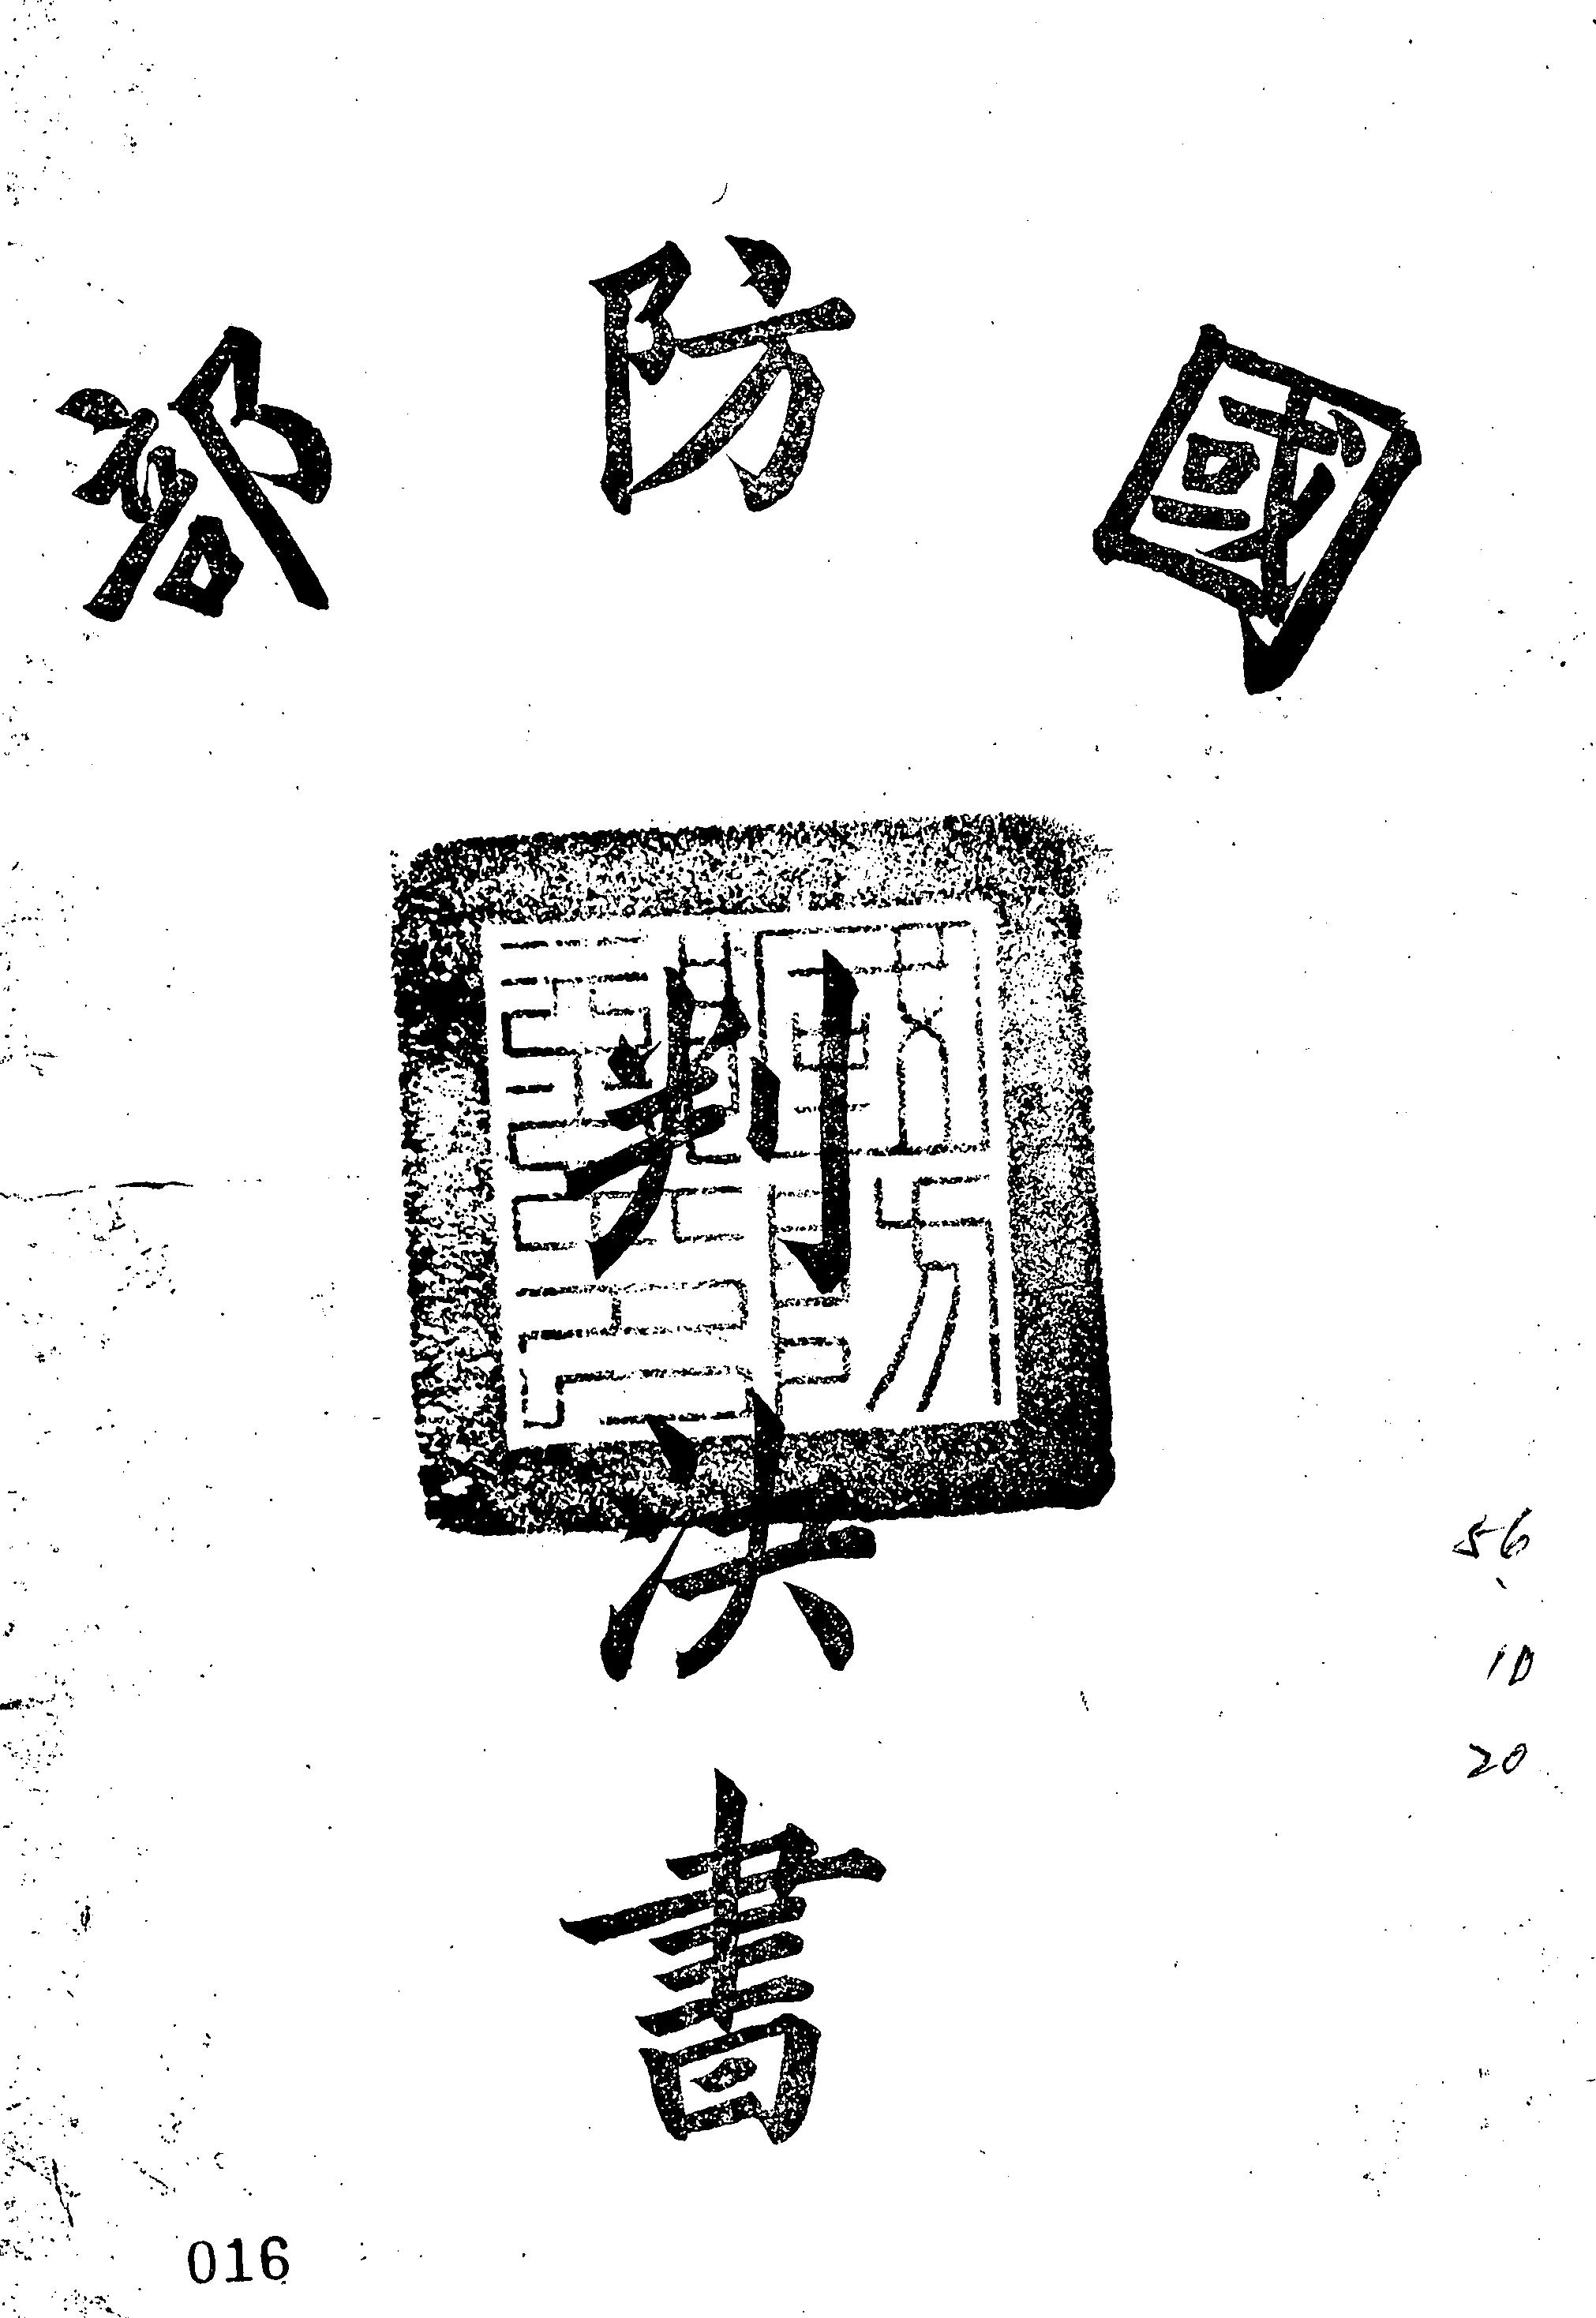 國防部
判決書
56、
10
20
016